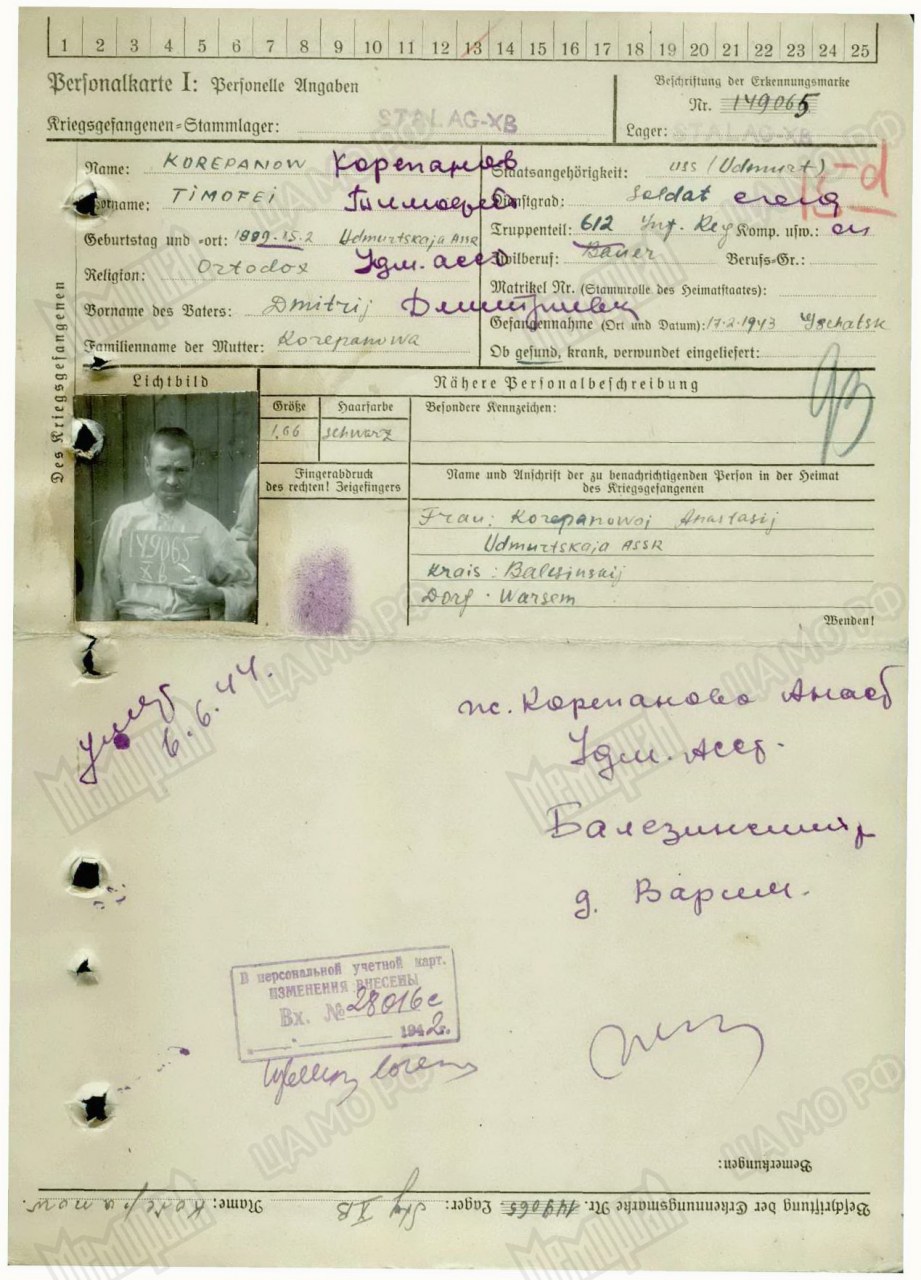 1 2 3 4 5 6 7 8 9 10 11 12 13 14 15 16 17 18 19 20 21 22 23 24 25
Personalkarte I: Personelle Angaben
Beschriftung der Erkennungsmarke
Nr. 149065
Kriegsgefangenen-Stammlager: STALAG-XB
Lager: STALAG-XB
Des Kriegsgefangenen
Name: KOREPANOW Корепанов
Vorname: TIMOFEI Тимофей
Geburtstag und -ort: Udmurtskaja ASSR
Religion: Ortodox Удм. АССР
Vorname des Vaters: Dmitrij Дмитриевич
Familienname der Mutter: Korepanowa
Staatsangehörigkeit: (Udmurt)
Dienstgrad: Soldat
Truppenteil: 612 Inf. Reg Komp. usw.:
Zivilberuf: Bauer Berufs-Gr.:
Matrikel Nr. (Stammrolle des Heimatstaates):
Gefangennahme (Ort und Datum): 17.2.1943
Ob gesund, krank, verwundet eingeliefert:
Lichtbild
149065
X b
Nähere Personalbeschreibung
Größe Haarfarbe Besondere Kennzeichen:
1,66 schwarz
Fingerabdruck
des rechten! Zeigefingers
Name und Anschrift der zu benachrichtigenden Person in der Heimat
des Kriegsgefangenen
Frau: Korepanowoj Anastasij
Udmurtskaja ASSR
Krais: Balesinskij
Dorf. Warsem
Wenden!
6.6.44.
ж. Корепанова Анаст
Удм. Асср.
Балезинский р
д.
В персональной учетной карт.
ИЗМЕНЕНИЯ ВНЕСЕНЫ
Вх. № 28016с
194 2г.
Bemerkungen:
Beschriftung der Erkennungsmarke Nr. 149065 Lager: XB Name: Korepanow.
Мемориал
ЦАМО РФ